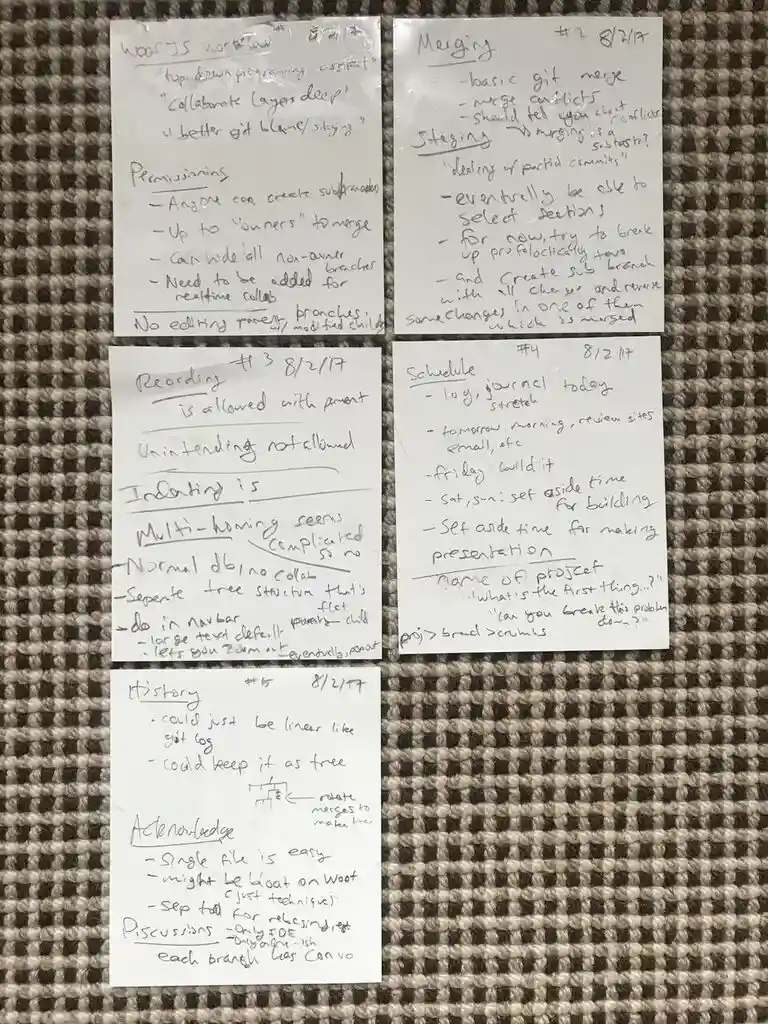 WOOTJS workflow #1 8/2/17
"top down programming assistant"
"collaborate layers deep"
"better git blame/staging"
Permissioning
- Anyone can create subbranches
- Up to "owners" to merge
- Can hide all non-owner
branches
- Need to be added for
realtime collab
No editing parent branches
w/ modified child
Merging #2 8/2/17
- basic git merge
- merge conflicts
- should tell you about
conflicts
Staging → merging is a
subtask?
"dealing w/ partial commits"
- eventually be able to
select sections
- for now, try to break
up
- and create sub branch
with all changes and reverse
some changes in one of them
which is merged
Reording #3 8/2/17
is allowed with parent
Unintending not allowed
Indenting is
Multi-homing seems
complicated
so no
- Normal db, no collab
- Seperate tree structure that's
flat
- do in navbar parent child
- large text default
- lets you zoom out - eventually
Schedule #4 8/2/17
- log, journal today
stretch
- tomorrow morning, review sites
email, etc
- friday build it
- sat, sun: set aside time
for building
- Set aside time for making
presentation
name of project
"what's the first thing...?"
"can you break this problem
down?"
proj > bread > crumbs
History #5 8/2/17
• could just be linear like
git log
- could keep it as tree
← rotate
merges to
make linear
Acknowledge
- Single file is easy
- might be bloat on Woot
(just technique)
- Sep tool for rebasing, etc
Discussions - Only IDE
each branch has convo